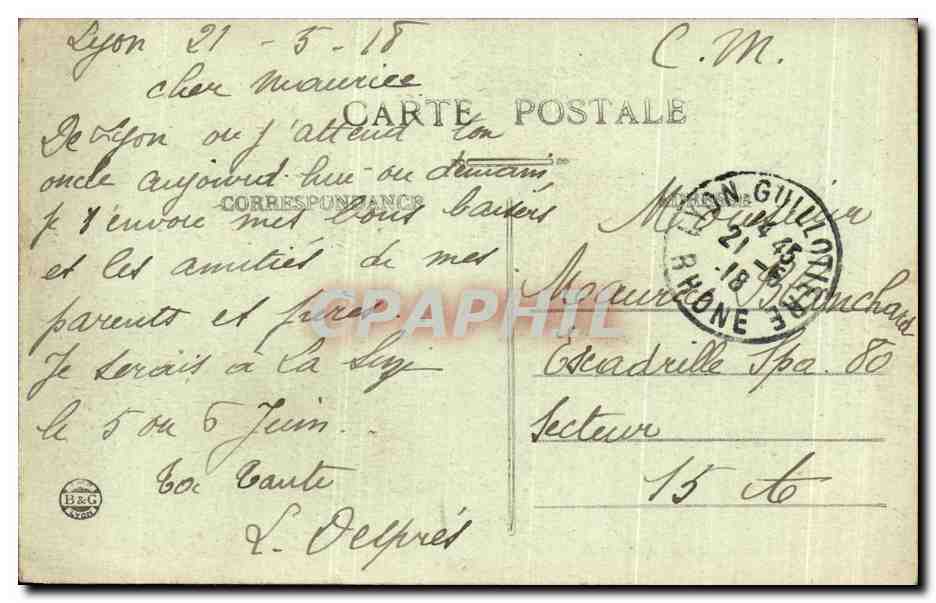 Lyon 21 - 5 - 18
C. M.
cher Maurice
CARTE POSTALE
De Lyon ou j'attend ton
oncle aujourd. hui ou demain
CORRESPONDANCE
je t'envoie mes bons baisers
et les amitiés de mes
parents et frères.
Je serais à La
le 5 ou 6 Juin..
Ta Tante
L. Després
B&G
LYON
LYON-GUILLOTIERE
14 45
21 - 5
18
RHONE
Monsieur
Maurice Blanchard
Escadrille Spa. 80
Secteur
15 A
CPAPHIL